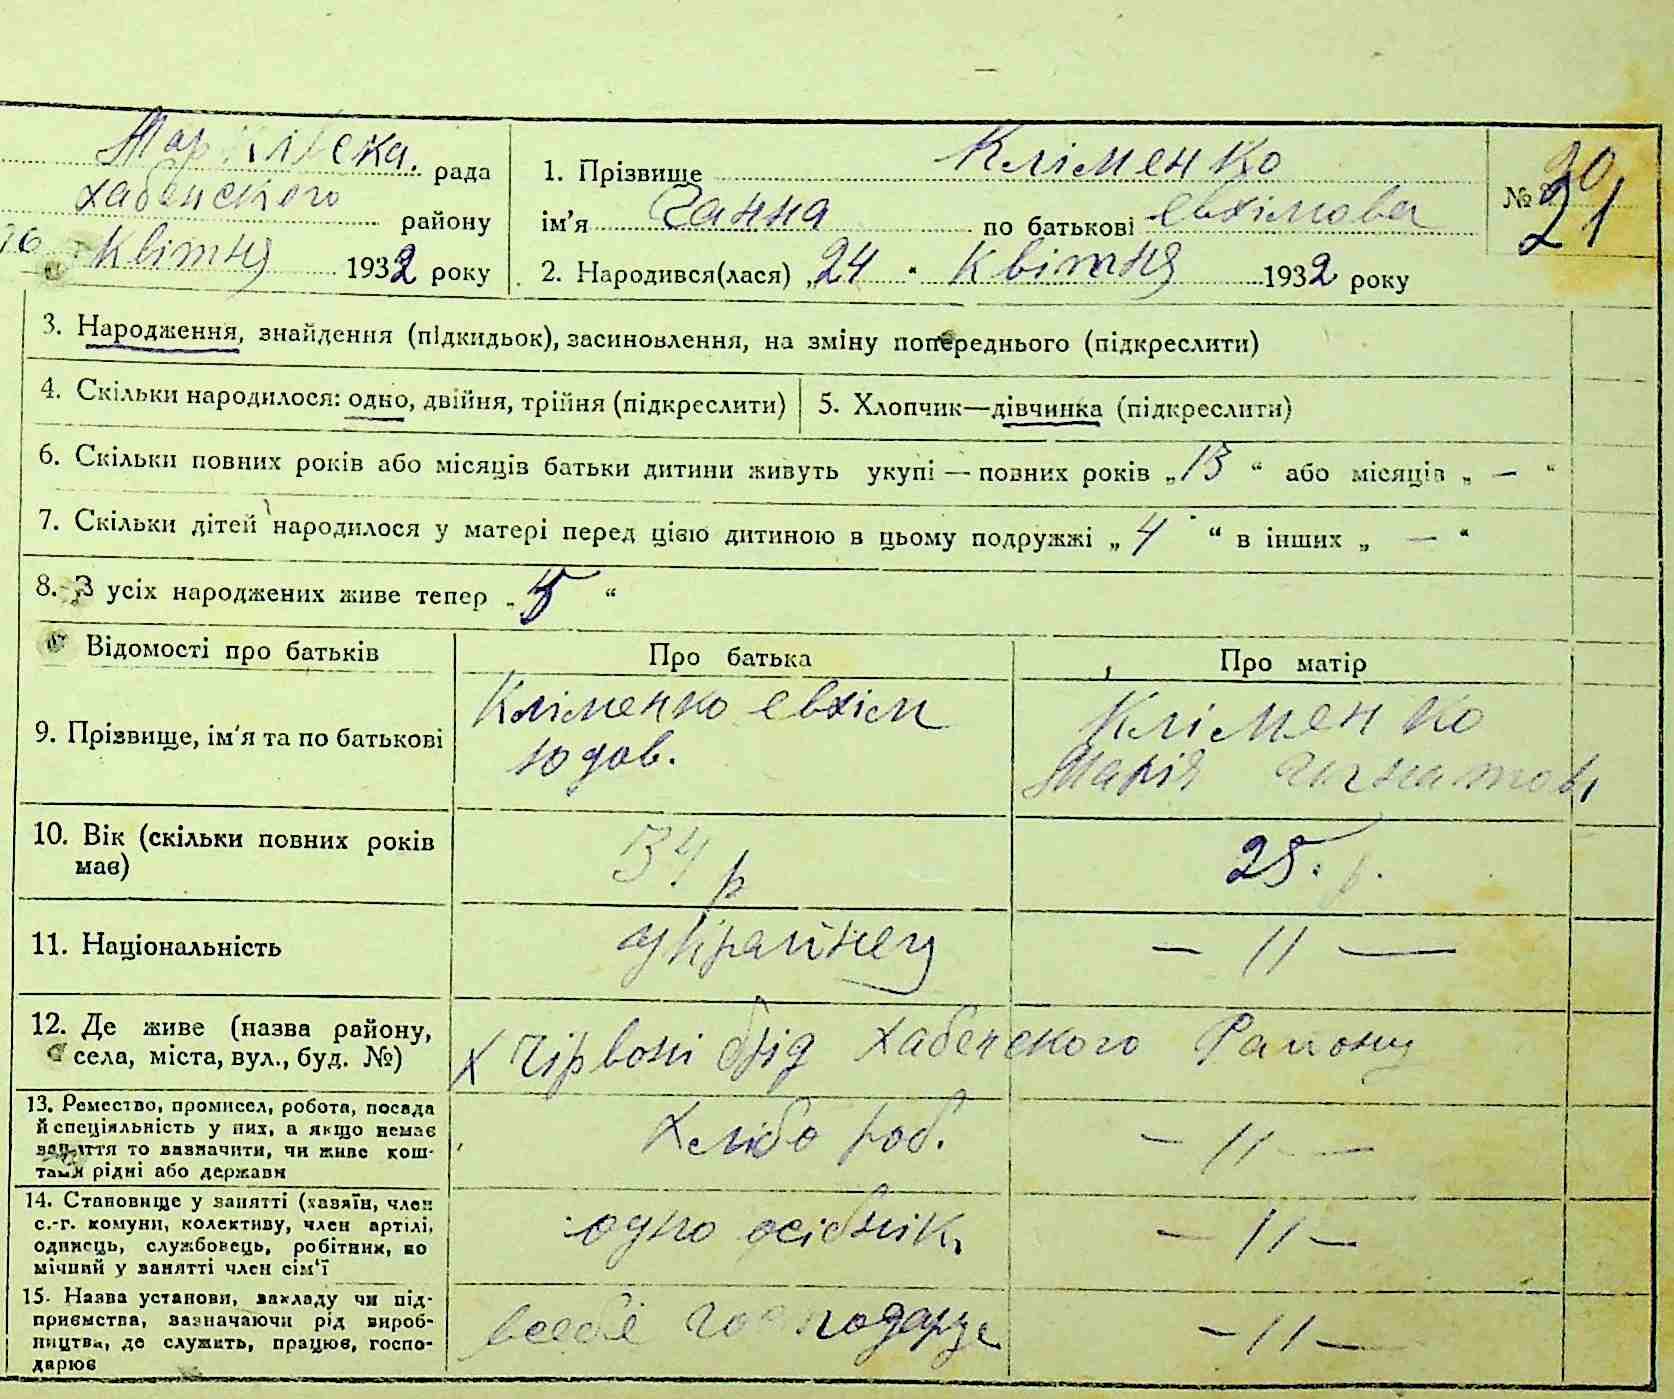 рада
Хабенского району
26 Квітня 1932 року
1. Прізвище Кліменко
ім'я Ганна по батькові евхімова
№ 21
2. Народився(лася) „24“ Квітня 1932 року
3. Народження, знайдення (підкидьок), засиновлення, на зміну попереднього (підкреслити)
4. Скільки народилося: одно, двійня, трійня (підкреслити)
5. Хлопчик—дівчинка (підкреслити)
6. Скільки повних років або місяців батьки дитини живуть укупі — повних років „13“ або місяців „ — “
7. Скільки дітей народилося у матері перед цією дитиною в цьому подружжі „ 4 “ в інших „ — “
8. З усіх народжених живе тепер „ 5 “
Відомості про батьків
Про батька
Про матір
9. Прізвище, ім'я та по батькові
Кліменко евхім
юдов.
Кліменко
Марія Игнатов
10. Вік (скільки повних років
має)
34 р
25. р.
11. Національність
украйнец
— 〃 —
12. Де живе (назва району,
села, міста, вул., буд. №)
х Чірвоні брід Хабенского Району
13. Ремество, промисел, робота, посада
й спеціяльність у них, а якщо немає
заняття то вазначити, чи живе кош-
тами рідні або держави
Хлібо роб.
— 〃 —
14. Становище у занятті (хазяїн, член
с.-г. комуни, колективу, член артілі,
одинець, службовець, робітник, по
мічний у занятті член сім'ї
одно осібнік
— 〃 —
15. Назва установи, закладу чи під-
приємства, вазначаючи рід вироб-
ництва, де служить, працює, госпо-
дарює
всебе господарує
— 〃 —